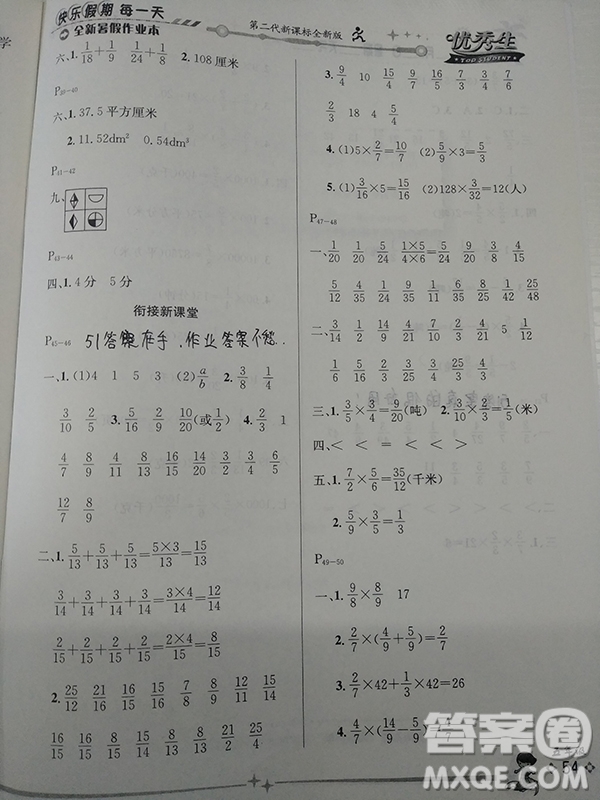 快乐假期 每一天
全新暑假作业本
第二代新课标全新版
优秀生
TOP STUDENT
学
六、1. 1/18 + 1/9 1/24 + 1/8 2. 108 厘米
P39-40
六、1. 37.5 平方厘米
2. 11.52dm² 0.54dm³
P41-42
九、
P43-44
四、1. 4 分 5 分
衔接新课堂
P45-46 51答案在手，作业答案不愁..
一、1. (1)4 1 5 3 (2) a/b 2. 3/8 1/4
3/10 2/5 3. 5/16 2/9 10/20(或 1/2) 4. 2/3 1
4/7 8/9 4/8 11/13 8/16 14/20 3/2 4/3
12/7 8/9
二、1. 5/13 + 5/13 + 5/13 = 5×3/13 = 15/13
3/14 + 3/14 + 3/14 + 3/14 = 3×4/14 = 12/14
2/15 + 2/15 + 2/15 + 2/15 = 2×4/15 = 8/15
2. 25/12 21/16 16/15 16/7 15/8 25/8 21/4 18/7
16/15 8/15 7/8 5/6 8/9 3/4 2/5 4/15
3. 9/4 10 15/4 2/5 3/2 7/3 3/4 7/6
2/3 18 4 5/4
4. (1)5× 2/7 = 10/7 (2) 5/9 ×3= 5/3
5. (1) 3/16 ×5= 15/16 (2)128× 3/32 =12(人)
P47-48
一、1/20 5/24 1×5/4×6 5/24 9/20 3/4 4/15
5/12 9/35 8/15 10/27 8/21 4/15 9/20 5/24
二、1/10 5/16 4/15 2/3 4/21 4/27 5 1/12
1/6 5/16 6/35 3/64 3/16 25/36 4/35 3/8
三、1. 3/5 × 3/4 = 9/20(吨) 2. 3/10 × 2/3 = 1/5(米)
四、< < = < <
五、1. 7/2 × 5/6 = 35/12(千米)
2. 5/9 × 3/5 = 1/3
P49-50
一、1. 9/8 × 8/9 17
2. 2/7 ×( 4/9 + 5/9 )= 2/7
3. 2/7 ×42+ 1/3 ×42=26
4. 2/7 ×( 14/9 - 5/9 )
54
答案圈
MXQE.COM